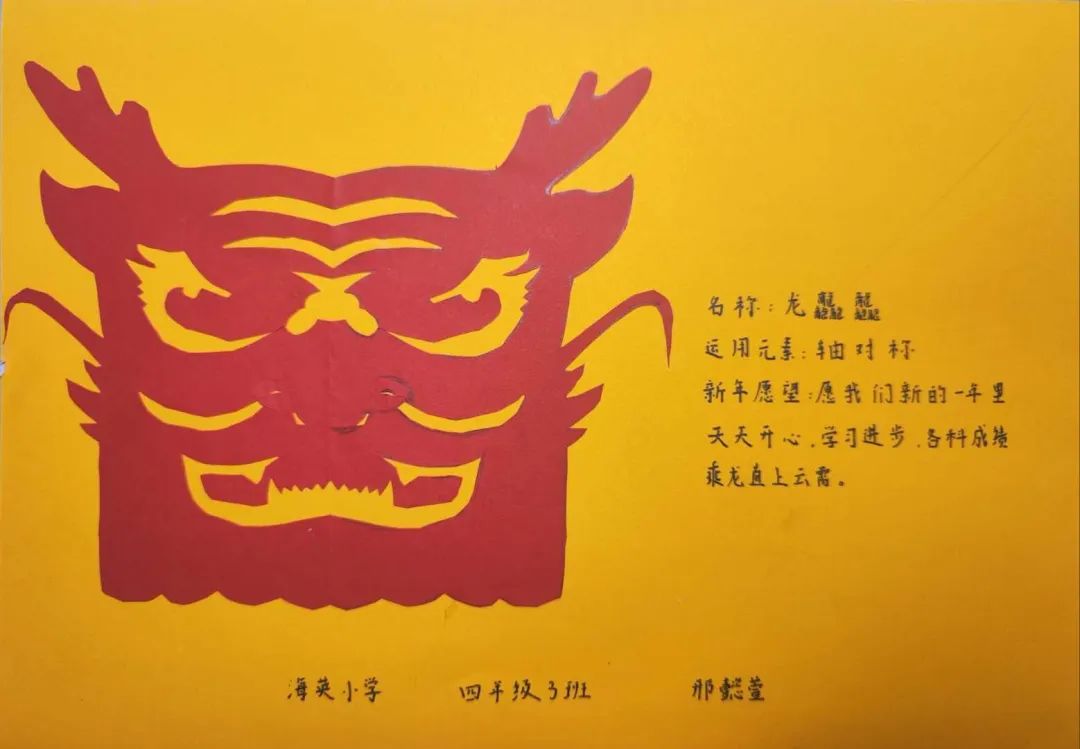 名称：龙龘龘
运用元素：轴对称
新年愿望：愿我们新的一年里
天天开心，学习进步，各科成绩
乘龙直上云霄。
海英小学 四年级3班 邢懿萱